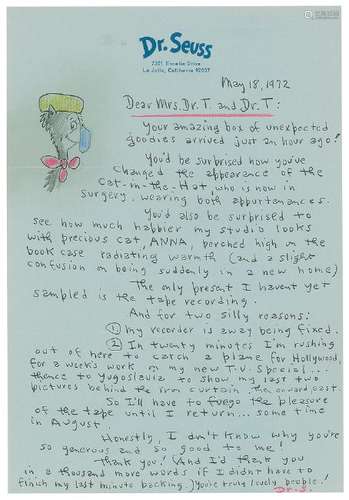 Dr. Seuss
7301 Encelia Drive
La Jolla, California 92037
May 18, 1972
Dear Mrs. Dr. T and Dr. T:
Your amazing box of unexpected
goodies arrived just an hour ago!
You'd be surprised how you've
changed the appearance of the
Cat-in-the-Hat, who is now in
surgery, wearing both appurtenances.
You'd also be surprised to
see how much happier my studio looks
with precious cat, ANNA, perched high on the
book case radiating warmth (and a slight
confusion on being suddenly in a new home)
The only present I havent yet
sampled is the tape recording.
And for two silly reasons:
① my recorder is away being fixed.
② In twenty minutes I'm rushing
out of here to catch a plane for Hollywood,
for a week's work on my new T.V. Special...
thence to Yugoslavia to show my last two
pictures behind the iron curtain, then onward east.
So I'll have to fuego the pleasure
of the tape until I return... some time
in August.
Honestly, I don't know why you're
so generous and so good to me!
Thank you! (And I'd thank you
in a thousand more words if I didn't have to
finish my last minute packing.) You're truly lovely people!
Dr. S.